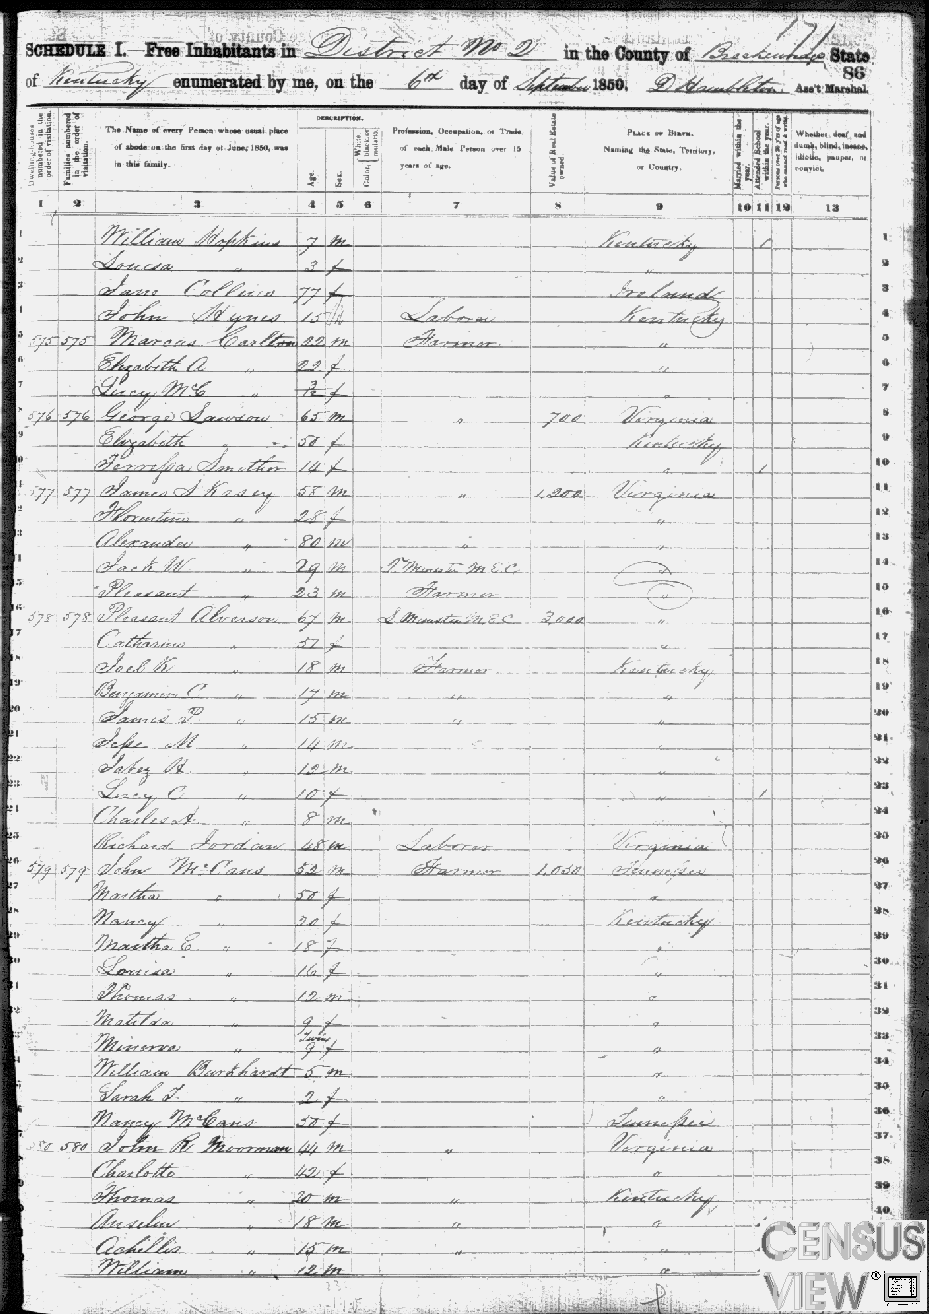 171
SCHEDULE I. Free Inhabitants in District No 2 in the County of Breckenridge State
of Kentucky enumerated by me, on the 6th day of September 1850. D Hambleton Ass't Marshal.
86
Dwelling-houses numbered in the order of visitation.
Families numbered in the order of visitation.
The Name of every Person whose usual place of abode on the first day of June, 1850, was in this family.
DESCRIPTION.
Age.
Sex.
Color, White, black, or mulatto.
Profession, Occupation, or Trade of each Male Person over 15 years of age.
Value of Real Estate owned.
PLACE OF BIRTH. Naming the State, Territory, or Country.
Married within the year.
Attended School within the year.
Persons over 20 y'rs of age who cannot read & write.
Whether deaf, and dumb, blind, insane, idiotic, pauper, or convict.
1 2 3 4 5 6 7 8 9 10 11 12 13
1 William Hopkins 7 m Kentucky 1 1
2 Louisa " 3 f " 2
3 Jane Collins 77 f Ireland 3
4 John Hynes 15 M Laborer Kentucky 4
5 575 575 Marcus Carlton 22 m Farmer " 5
6 Elizabeth A " 22 f " 6
7 Lucy McC " 3/12 f 7
8 576 576 George Lawson 65 m " 700 Virginia 8
9 Elizabeth " 50 f Kentucky 9
10 Smither 14 f " 1 10
11 577 577 James S Kasey 58 m " 1,200 Virginia 11
12 Florentina " 28 f " 12
13 Alexander " 80 m " 13
14 Jack W " 29 m Minister M E C " 14
15 Pleasant " 23 m Farmer " 15
16 578 578 Pleasant Alverson 67 m Minister M.E.C 3,000 " 16
17 Catharine " 51 f " 17
18 Joel K " 18 m Farmer Kentucky 18
19 Benjamin C " 17 m " " 19
20 James P " 15 m " " 20
21 Jesse M " 14 m " 21
22 Jabez H " 12 m " 22
23 Lucy C " 10 f " 1 23
24 Charles A " 8 m 24
25 Richard Jordan 48 m Laborer Virginia 25
26 579 579 John McCans 52 m Farmer 1,050 Tennessee 26
27 Martha " 50 f " 27
28 Nancy " 20 f Kentucky 28
29 Martha E " 18 f " 29
30 Louisa " 16 f " 30
31 Thomas " 12 m " 31
32 Matilda " 9 f " 32
twins
33 Minerva " 9 f " 33
34 William Burkhardt 5 m " 34
35 Sarah F " 2 f " 35
36 Nancy McCans 50 f Tennessee 36
37 580 580 John R Moorman 44 m " Virginia 37
38 Charlotte " 42 f " 38
39 Thomas " 20 m " Kentucky 39
40 Anselm " 18 m " " 40
Achillis " 15 m " "
William " 12 m "
CENSUS
VIEW®